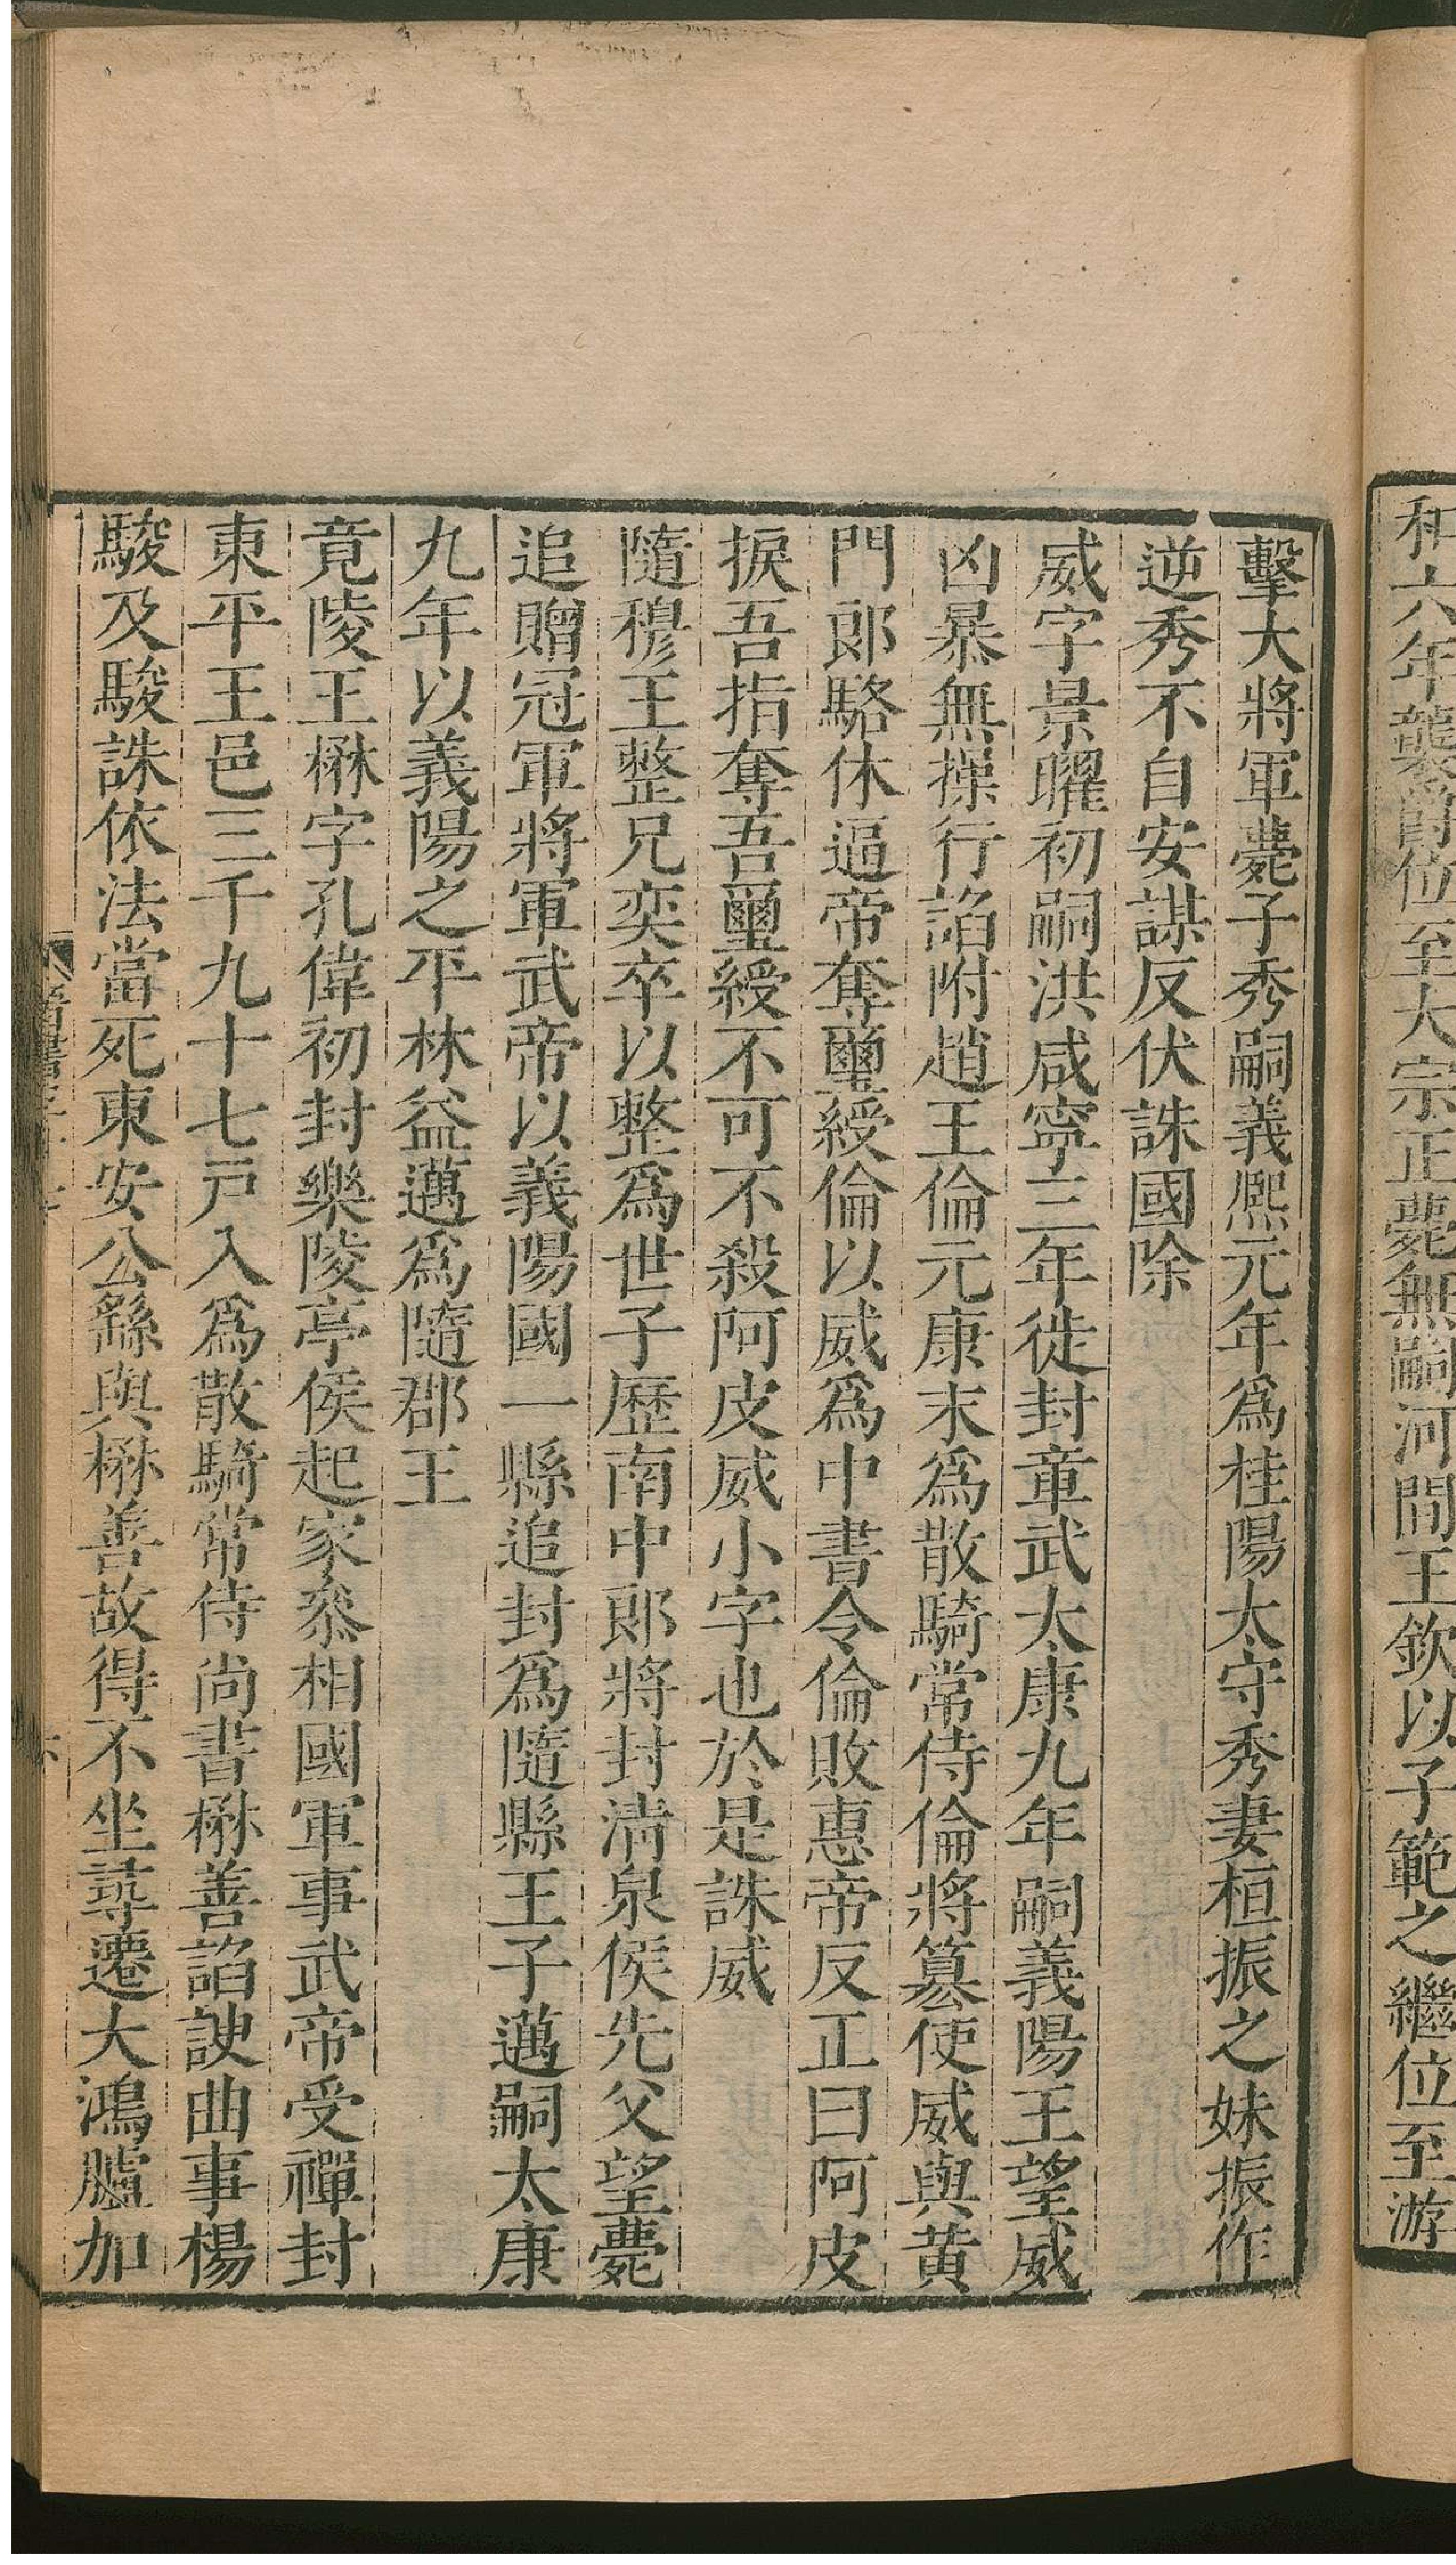 和六年襲爵位至大宗正薨無嗣河間王欽以子範之繼位至游
擊大將軍薨子秀嗣義熈元年爲桂陽太守秀妻桓振之妹振作
逆秀不自安謀反伏誅國除
威字景曜初嗣洪咸寧三年徙封章武太康九年嗣義陽王望威
凶暴無操行諂附趙王倫元康末爲散騎常侍倫將篡使威與黄
門郎駱休逼帝奪璽綬倫以威爲中書令倫敗惠帝反正曰阿皮
捩吾指奪吾璽綬不可不殺阿皮威小字也於是誅威
隨穆王整兄奕卒以整爲世子歷南中郎將封清泉侯先父望薨
追贈冠軍將軍武帝以義陽國一縣追封爲隨縣王子邁嗣太康
九年以義陽之平林益邁爲隨郡王
竟陵王楙字孔偉初封樂陵亭侯起家叅相國軍事武帝受禪封
東平王邑三千九十七戸入爲散騎常侍尚書楙善諂諛曲事楊
駿及駿誅依法當死東安公繇與楙善故得不坐尋遷大鴻臚加